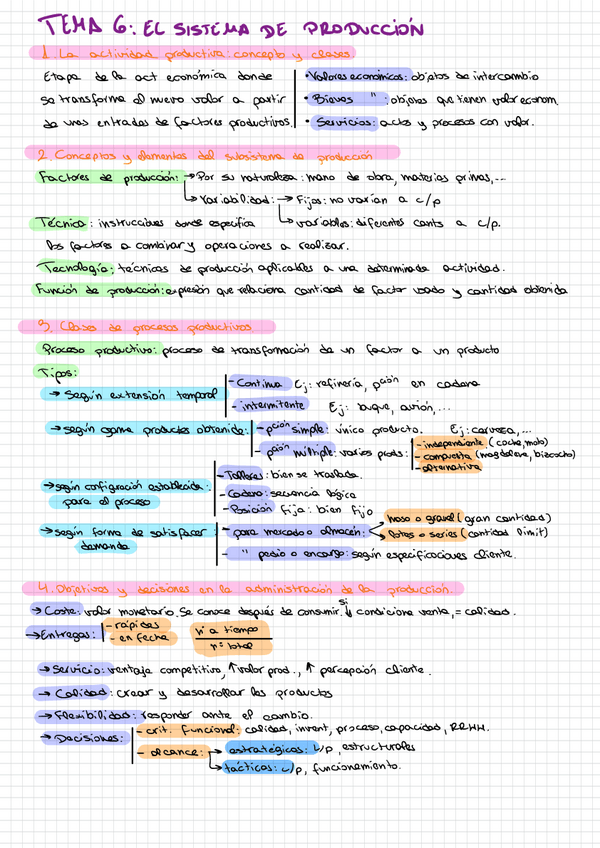 TEMA 6: EL SISTEMA DE PRODUCCIÓN
1. La actividad productiva: concepto y clases
Etapa de la act económica donde
se transforma el nuevo valor a partir
de unas entradas de factores productivos.
• Valores económicos: objetos de intercambio
• Bienes " : objetos que tienen valor económ.
• Servicios: actos y procesos con valor.
2. Conceptos y elementos del subsistema de producción
Factores de producción: → Por su naturaleza: mano de obra, materias primas,...
→ Variabilidad: → Fijos: no varían a c/p
→ variables: diferentes cants a c/p.
Técnica: instrucciones donde especifica
los factores a combinar y operaciones a realizar.
Tecnología: técnicas de producción aplicables a una determinada actividad.
Función de producción: expresión que relaciona cantidad de factor usado y cantidad obtenida
3. Clases de procesos productivos
Proceso productivo: proceso de transformación de un factor a un producto
Tipos:
→ Según extensión temporal
- Continua Ej: refinería, pción en cadena
- intermitente Ej: buque, avión,...
→ según gama productos obtenida:
- pción simple: único producto. Ej: cerveza,...
- pción múltiple: varios prods:
- independiente (coche, moto)
- compuesta (magdalena, bizcocho)
- alternativa
→ según configuración establecida
para el proceso
- Talleres: bien se traslada.
- Cadena: secuencia lógica
- Posición fija: bien fijo
→ según forma de satisfacer
demanda
- para mercado o almacén:
masa o granel (gran cantidad)
lotes o series (cantidad limit)
- " pedio o encargo: según especificaciones cliente.
4. Objetivos y decisiones en la administración de la producción.
→ Coste: valor monetario. Se conoce después de consumir. si ↓ condiciona venta, = calidad.
→ Entregas:
- rápidas
- en fecha
nº a tiempo
nº total
→ Servicio: ventaja competitiva, ↑ valor prod., ↑ percepción cliente.
→ Calidad: crear y desarrollar los productos
→ Flexibilidad: responder ante el cambio.
→ Decisiones:
- crit. Funcional: calidad, invent, proceso, capacidad, RRHH.
- alcance: → estratégicas: L/p, estructurales
→ tácticas: c/p, funcionamiento.